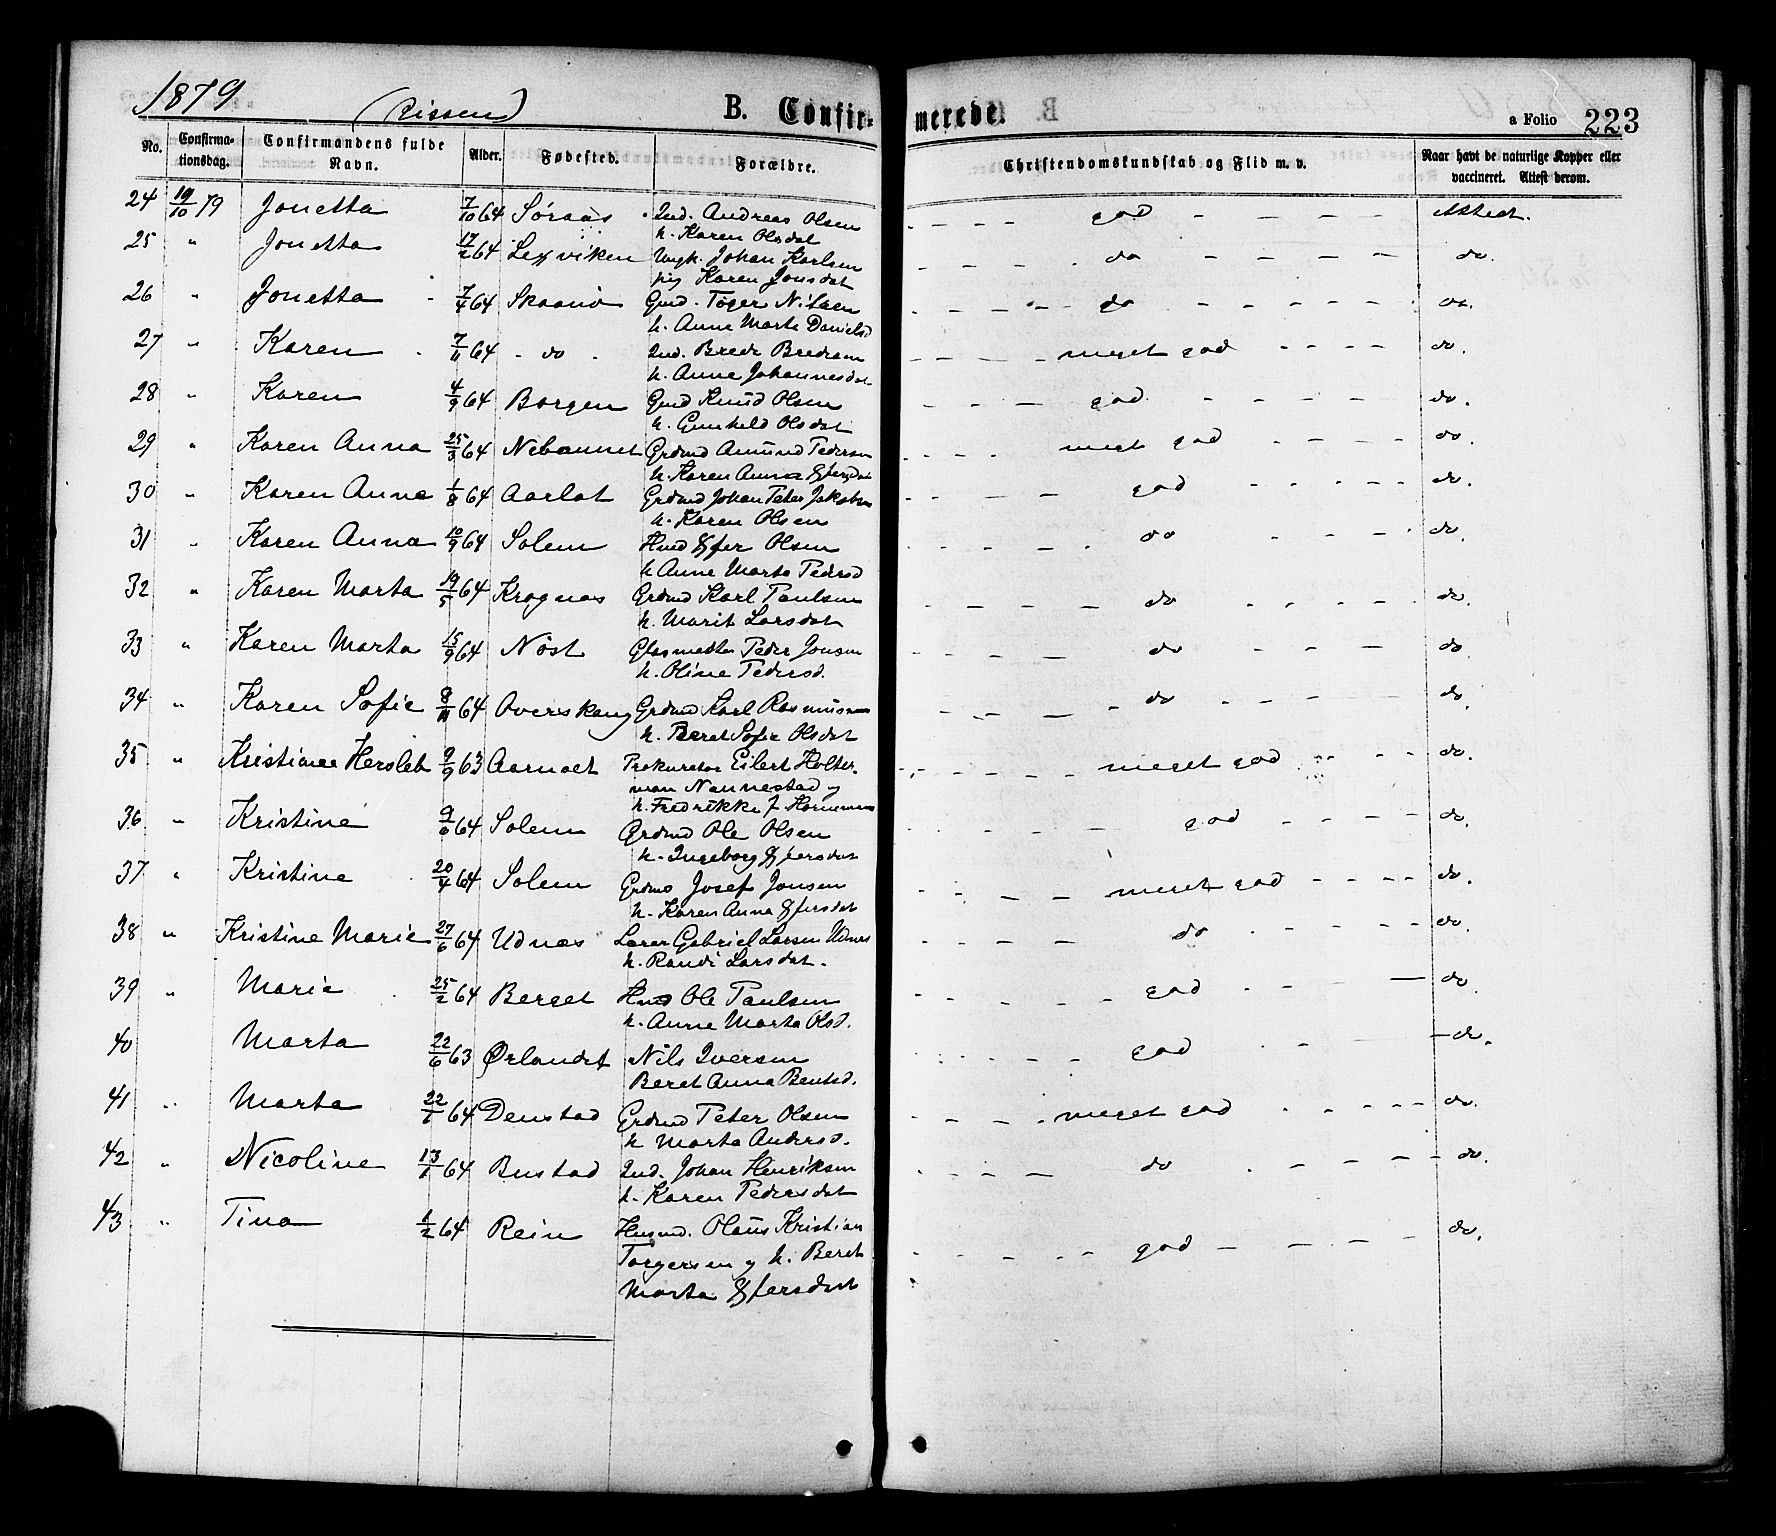 1879
(Rissen)
B. Confir- merede.
a Folio 223
No. Confirma-tionsdag. Confirmandens fulde Navn. Alder. Fødested. Forældre. Christendomskundskab og Flid m. v. Naar havt de naturlige Kopper eller vaccineret. Attest derom.
24 19/10 79 Jonetta 7/10 64 Søraas Ind. Andreas Olsen - - - god - - - - Attest.
h. Karen Olsdat
25 " Jonetta 17/2 64 Lexviken Ungk. Johan Karlsen - - - do - - - - do.
pig Karen Jonsdat
26 " Jonetta 7/4 64 Skaanø Gmd. Tøger Nilsen - - - do - - - - do.
h. Anne Marta Danielsd
27 " Karen 7/11 64 - do - Ind. Brede Bredesen - - - meget god - - - - do.
h. Anne Johannesdat
28 " Karen 4/9 64 Borgen Gmd Knud Olsen - - - god - - - - do.
h. Gunhild Olsdat
29 " Karen Anna 25/3 64 Grdmd Amund Pedersen - - - meget god - - - - do.
h. Karen Anna Ejersdat
30 " Karen Anna 1/8 64 Aarlot Grdmd Johan Peter Jakobsen - - - god - - - - do.
h. Karen Olsen
31 " Karen Anna 10/9 64 Solem Hmd Ejer Olsen - - - do - - - do.
h Anne Marta Pedersd
32 " Karen Marta 19/5 64 Kragnas Grdmd Karl Paulsen - - - do - - - - do.
h. Marit Larsdat
33 " Karen Marta 15/9 64 Nøst Glasmester Peder Jonsen - - - do - - - do
h. Oline Pedersd.
34 " Karen Sofie 8/11 64 Overskaug Grdmd Karl Rasmussen - - - do - - - - do.
h. Beret Sofie Olsdat
35 " Kristiane Hersleb 9/9 63 Aarnset Prokurator Eilert Holter- - - - meget god - - - - do.
man Nannestad og
h. Fredrikke f. Hornemann
36 " Kristine 9/6 64 Solem Grdmd Ole Olsen - - - god - - - - do.
h. Ingeborg Ejersdat
37 " Kristine 20/4 64 Solem Grdmd Josef Jonsen - - - meget god - - - - do.
h. Karen Anna Ejersdat
38 " Kristine Marie 27/6 64 Udnæs Lærer Gabriel Larsen Udnæs - - - do - - - - do.
h. Randi Larsdat.
39 " Marie 25/2 64 Berget Hmd Ole Paulsen - - - god - - - do
h. Anne Marta Olsd.
40 Marta 22/6 63 Ørlandet Nils Iversen - - - god - - - do.
Beret Anna Bentsd.
41 " Marta 22/1 64 Denstad Grdmd Peter Olsen - - - meget god - - - - do.
h Marta Andersd.
42 " Nicoline 13/1 64 Bustad Ind. Johan Henriksen - - - do - - - - do.
h. Karen Pedersdat
43 " Tina 1/2 64 Rein Husmd. Olaus Kristian - - - god - - - - do.
Torgersen og h. Beret
Marta Ejersdat